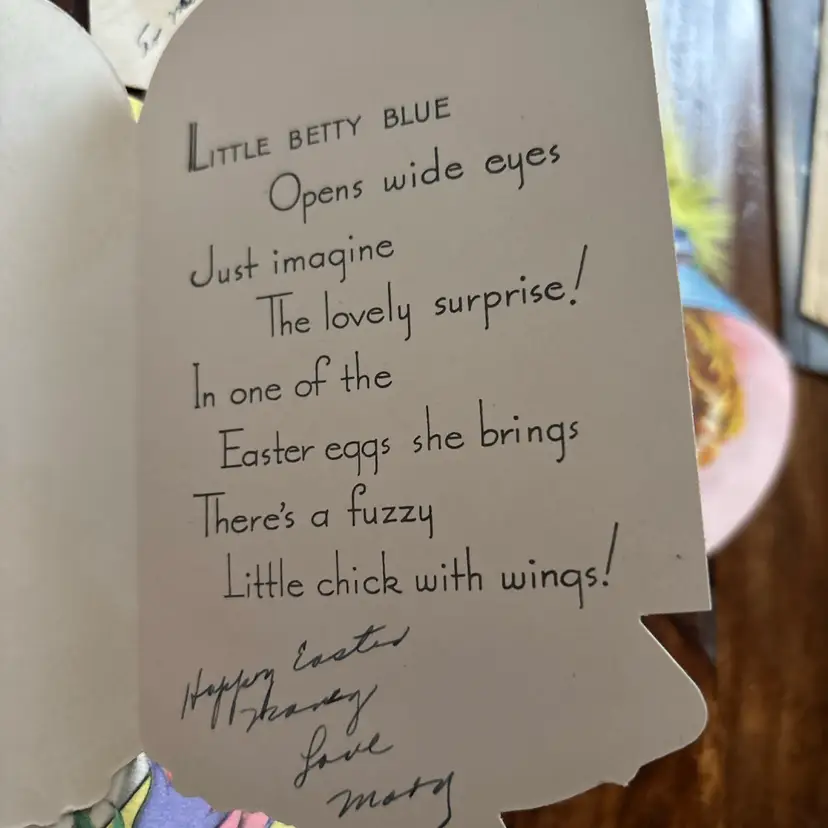 LITTLE BETTY BLUE
Opens wide eyes
Just imagine
The lovely surprise!
In one of the
Easter eggs she brings
There's a fuzzy
Little chick with wings!
Happy Easter
Love
Mary